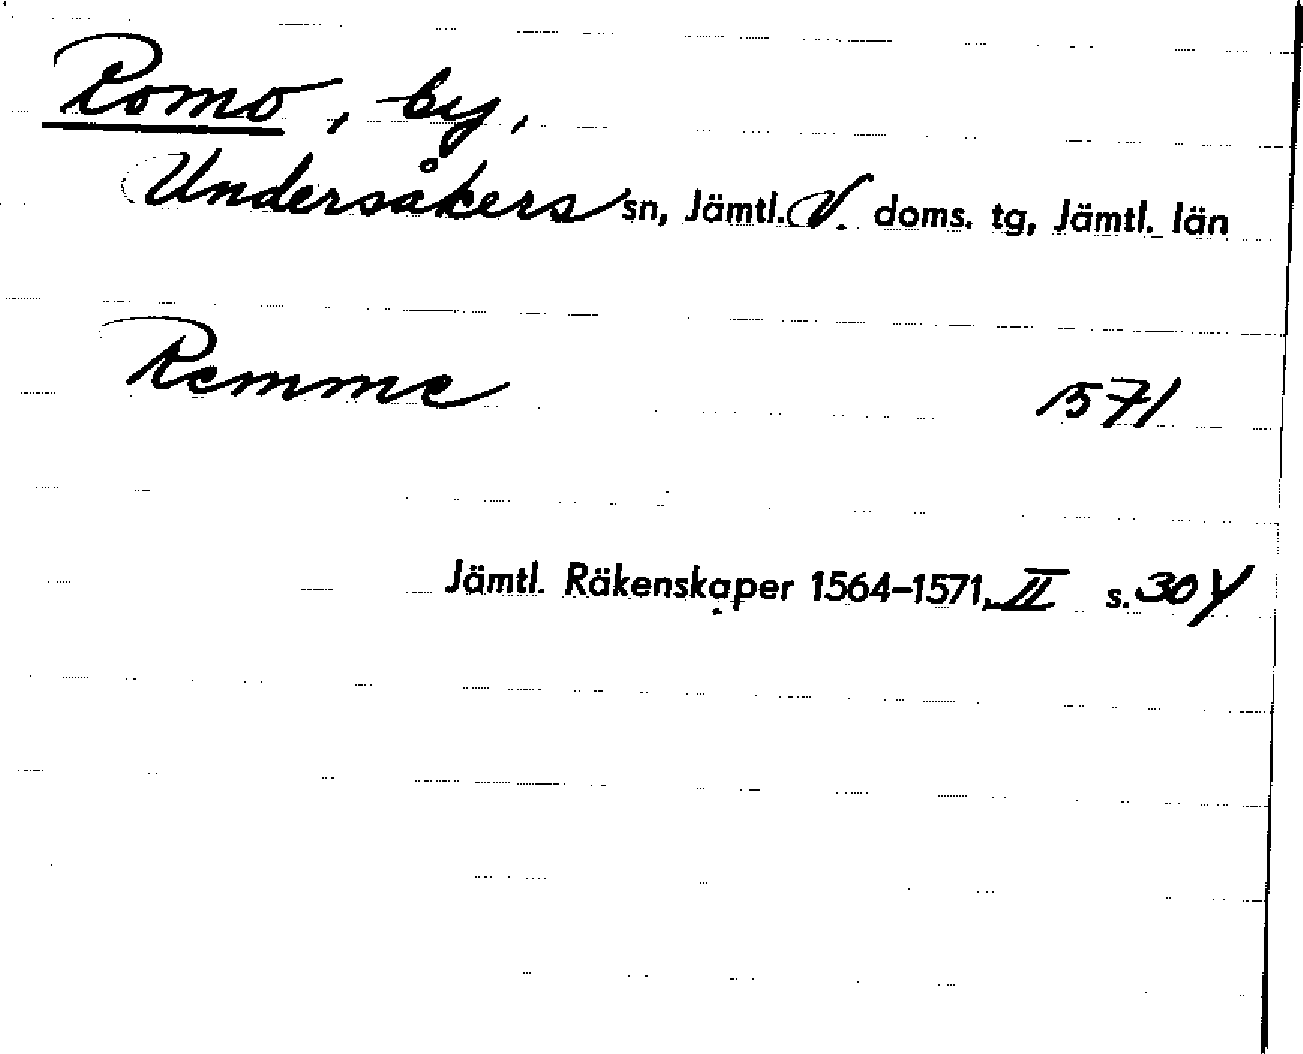 Romo, by,
Undersåkers sn, Jämtl. V. doms. tg, Jämtl. län
Remme 1571
Jämtl. Räkenskaper 1564–1571, II s.